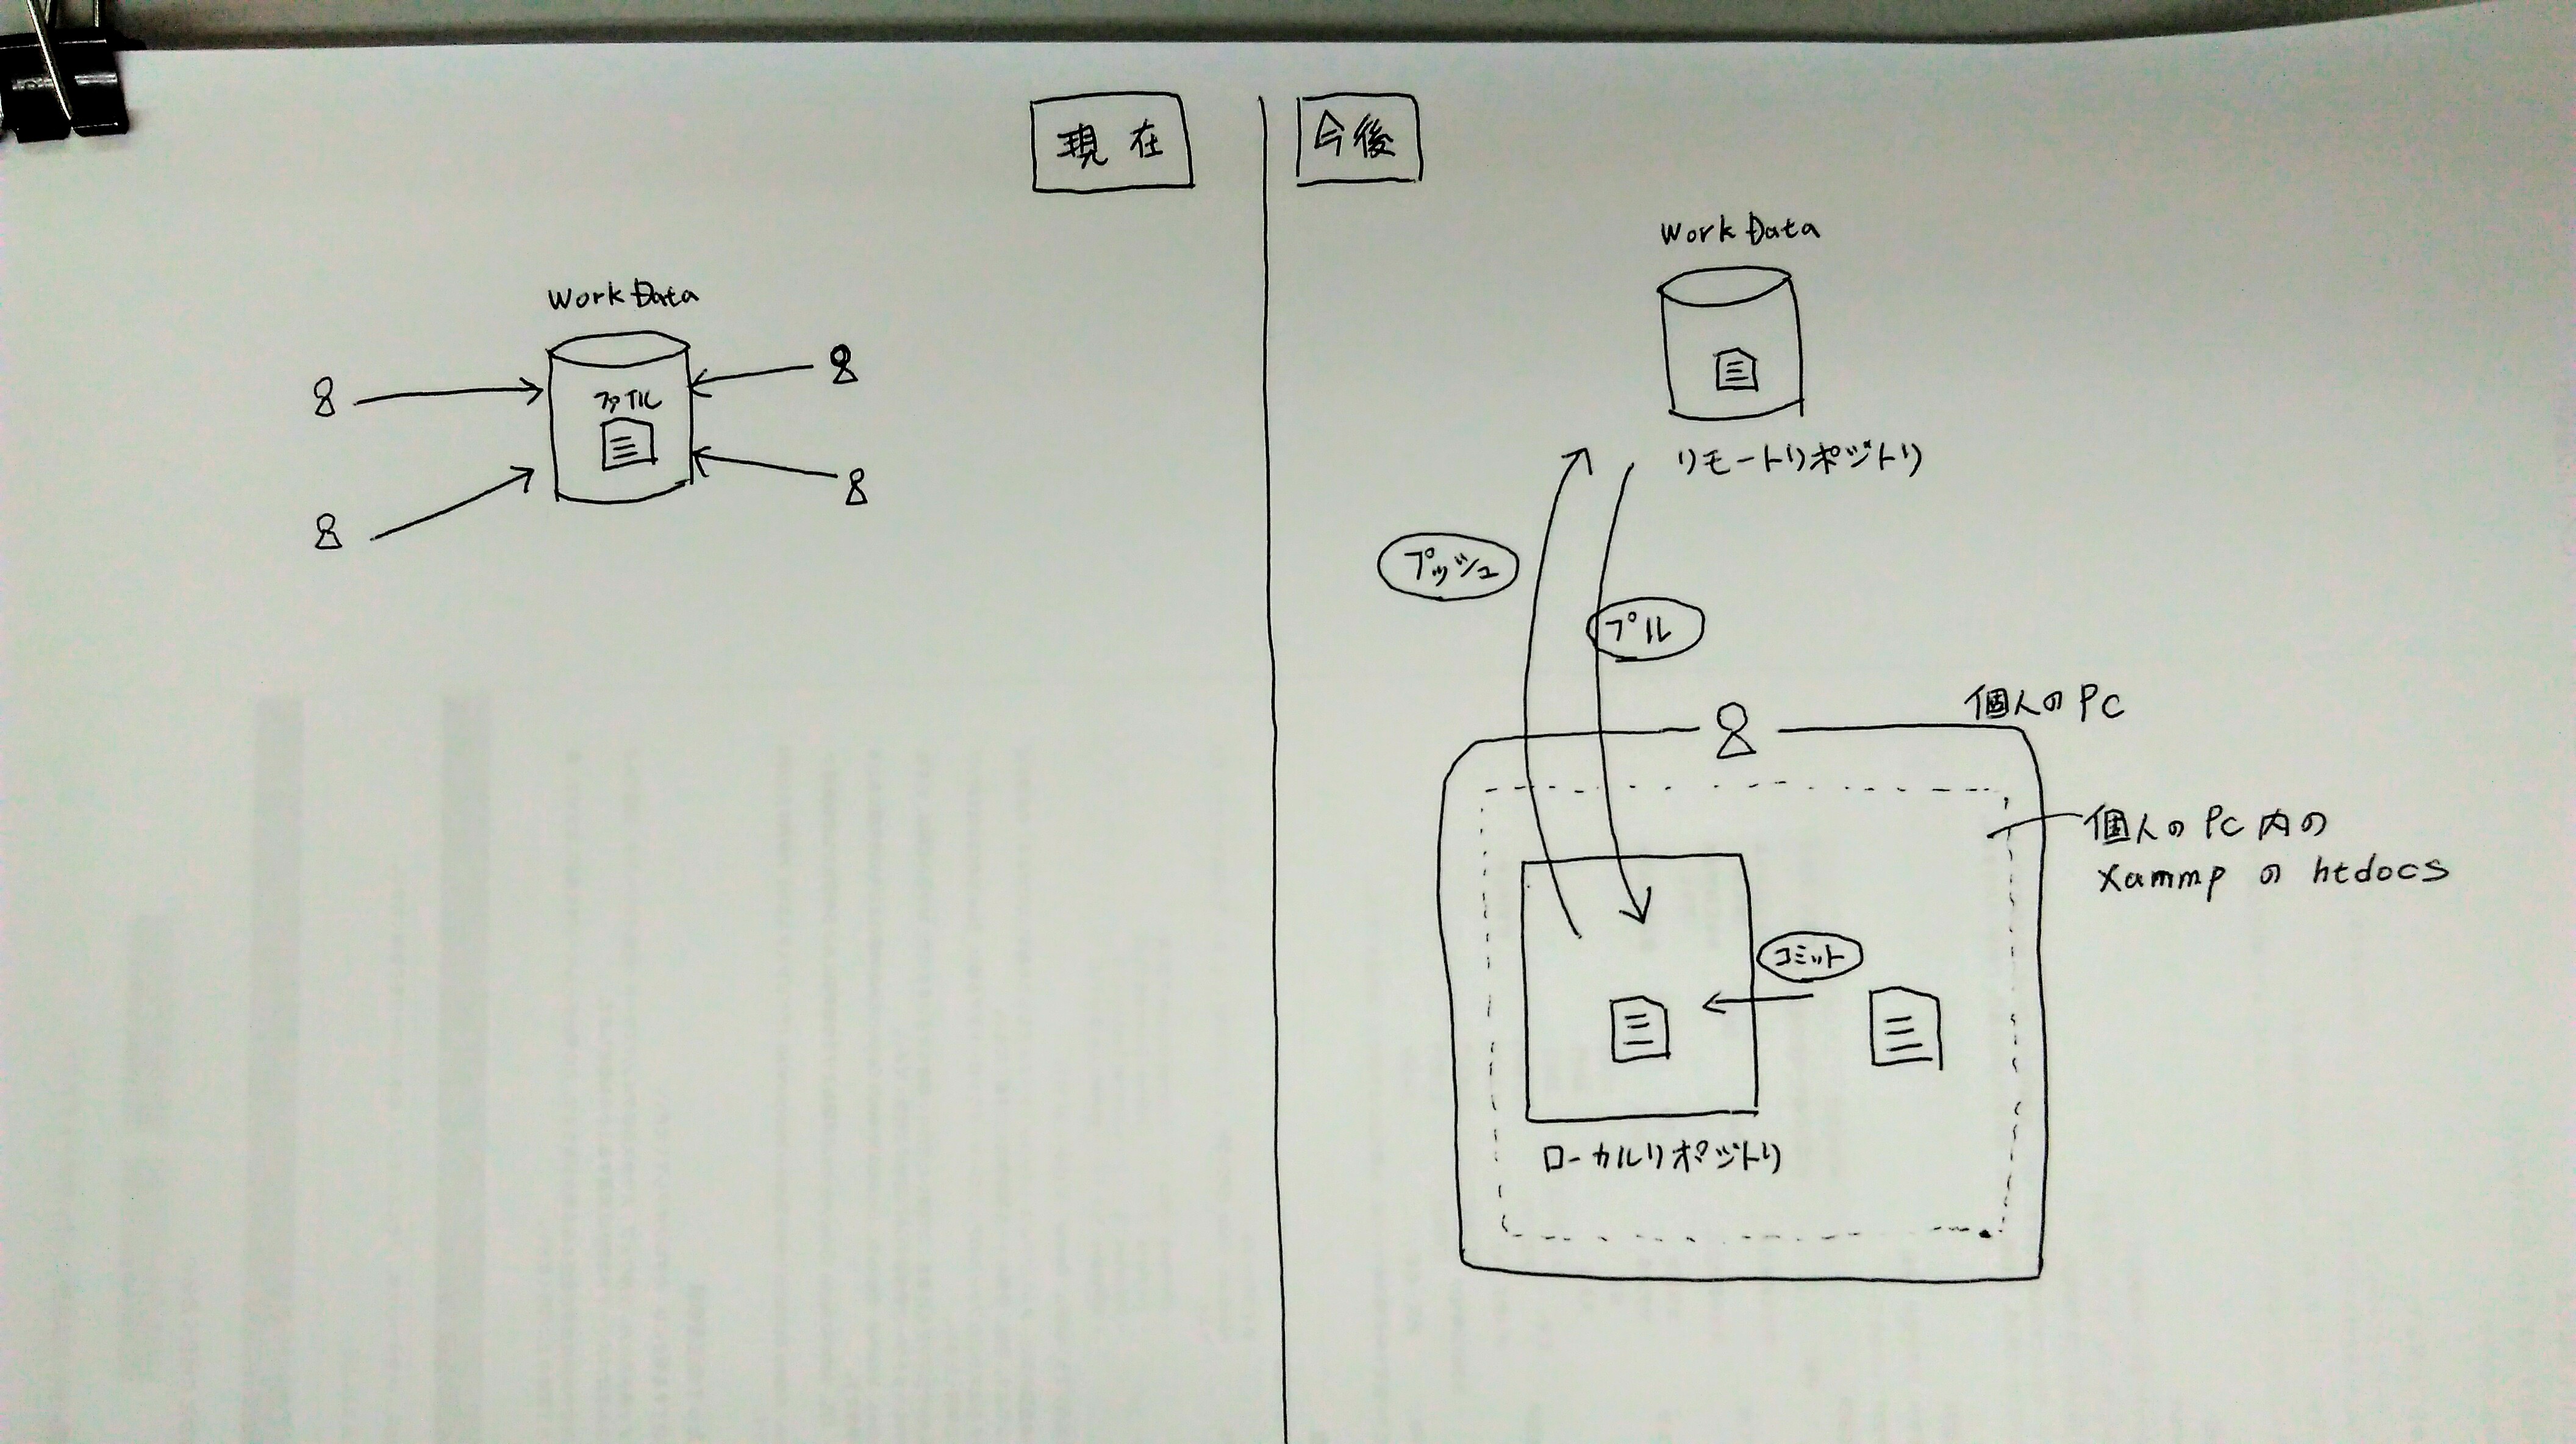 現在
Work Data
ファイル
今後
Work Data
リモートリポジトリ
プッシュ
プル
個人のPC
個人のPC内の
xammpのhtdocs
コミット
ローカルリポジトリ